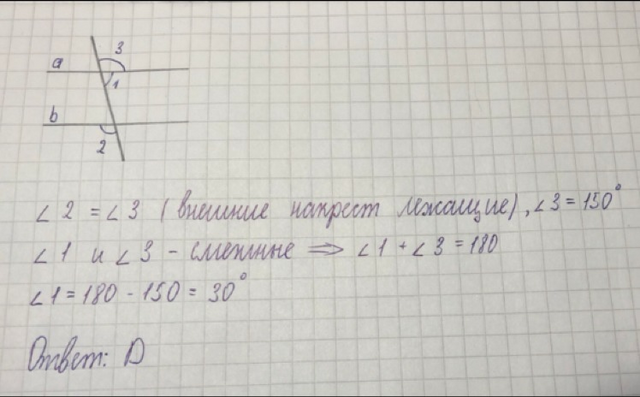 a
3
1
b
2
∠2 = ∠3 (внешние накрест лежащие), ∠3 = 150°
∠1 и ∠3 - смежные ⇒ ∠1 + ∠3 = 180
∠1 = 180 - 150 = 30°
Ответ: D